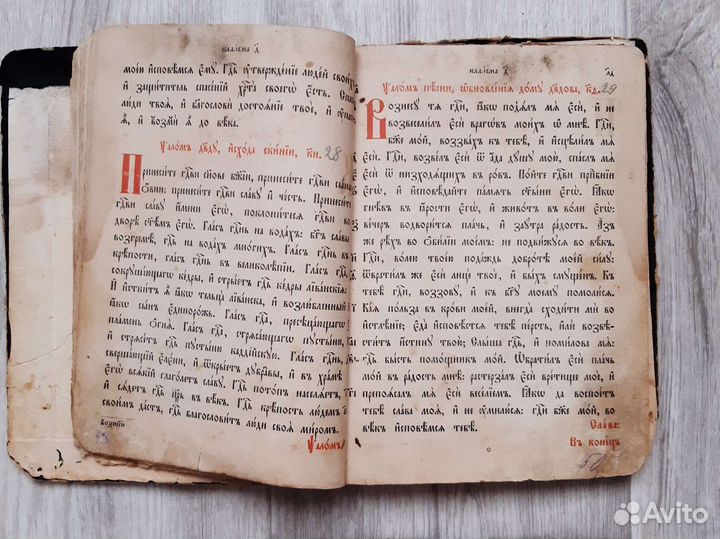 каѳісма д҃
моей исповѣмся ему. Гдⷭ҇ь утвержденіе людей своихъ,
и защититель спасеній хрⷭ҇та своегѡ есть. Спаси
люди твоя, и благослови достояніе твое, и упаси
я, и возми я до вѣка.
Ѱаломъ дв҃ду, исхода скиніи, к҃и. 28
Принесите гдⷭ҇ви сынове бж҃іи, принесите гдⷭ҇ви сыны
овни: принесите гдⷭ҇ви славу и честь. Принесите
гдⷭ҇ви славу имени егѡ, поклонитеся гдⷭ҇ви во
дворѣ ст҃ѣмъ егѡ. Гласъ гдⷭ҇нь на водахъ: бг҃ъ славы
возгремѣ, гдⷭ҇ь на водахъ многихъ. Гласъ гдⷭ҇нь въ
крѣпости, гласъ гдⷭ҇нь въ великолѣпіи. Гласъ гдⷭ҇а,
сокрушающагѡ кедры, и стрыетъ гдⷭ҇ь кедры лівански:
И истнитъ я якѡ тельца ліванска, и возлюбленный
якѡ сынъ единорожь. Гласъ гдⷭ҇а, пресѣцающагѡ
пламень огня. Гласъ гдⷭ҇а, стрясающагѡ пустыню,
и стрясетъ гдⷭ҇ь пустыню каддійскую. Гласъ гдⷭ҇нь,
свершающій елени, и ѿкрыетъ дубравы, и въ храмѣ
егѡ всякій глаголетъ славу. Гдⷭ҇ь потопъ населяетъ,
и сядетъ гдⷭ҇ь цр҃ь въ вѣкъ. Гдⷭ҇ь крѣпость людемъ
своимъ дастъ, гдⷭ҇ь благословитъ люди своя миромъ.
Ѱаломъ
каѳісма д҃
Ѱаломъ пѣсни, ѡбновленія дому дв҃дова, к҃ѳ. 29
Вознесу тя гдⷭ҇и, якѡ подъялъ мя еси, и не
возвеселилъ еси враговъ моихъ ѡ мнѣ. Гдⷭ҇и,
бж҃е мой, воззвахъ къ тебѣ, и исцѣлилъ мя
еси. Гдⷭ҇и, возвелъ еси ѿ ада душу мою, спаслъ мя
еси ѿ низходящихъ въ ровъ. Пойте гдⷭ҇ви прпⷣбніи
егѡ, и исповѣдайте память ст҃ыни егѡ. Якѡ
гнѣвъ въ ярости егѡ, и животъ въ воли егѡ:
вечеръ водворится плачь, и заутра радость. Азъ
же рѣхъ во обиліи моемъ: не подвижуся во вѣкъ.
Гдⷭ҇и, волею твоею подаждь добротѣ моей силу:
ѿвратилъ же еси лице твое, и быхъ смущенъ. Къ
тебѣ гдⷭ҇и, воззову, и къ бг҃у моему помолюся.
Кая польза въ крови моей, внегда сходити ми во
истлѣніе; еда исповѣстся тебѣ персть, или возвѣ-
ститъ истину твою; Слыша гдⷭ҇ь, и помилова мя:
гдⷭ҇ь бысть помощникъ мой. Ѡбратилъ еси плачь
мой въ радость мнѣ: растерзалъ еси вретище мое, и
препоясалъ мя еси веселіемъ. Якѡ да воспоетъ
тебѣ слава моя, и не умилюся: гдⷭ҇и бж҃е мой, во
вѣкъ исповѣмся тебѣ.
Слава:
Въ конецъ
Avito